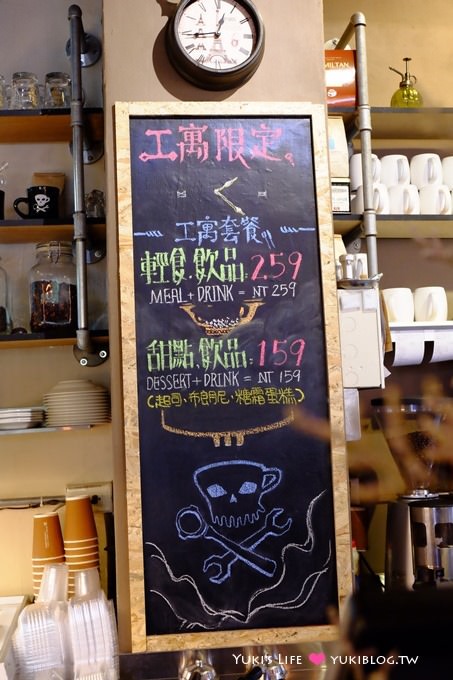 工寓限定。
工寓套餐
輕食.飲品:259
MEAL + DRINK = NT 259
甜點.飲品:159
DESSERT + DRINK = NT 159
(起司、布朗尼、糖霜蛋糕)
MILTAN
YUKI'S LIFE ♥ YUKIBLOG.TW